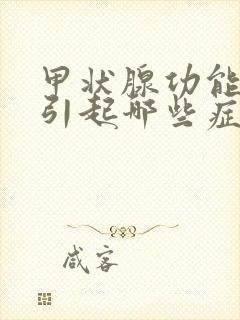 甲状腺功能
引起哪些症
咸客